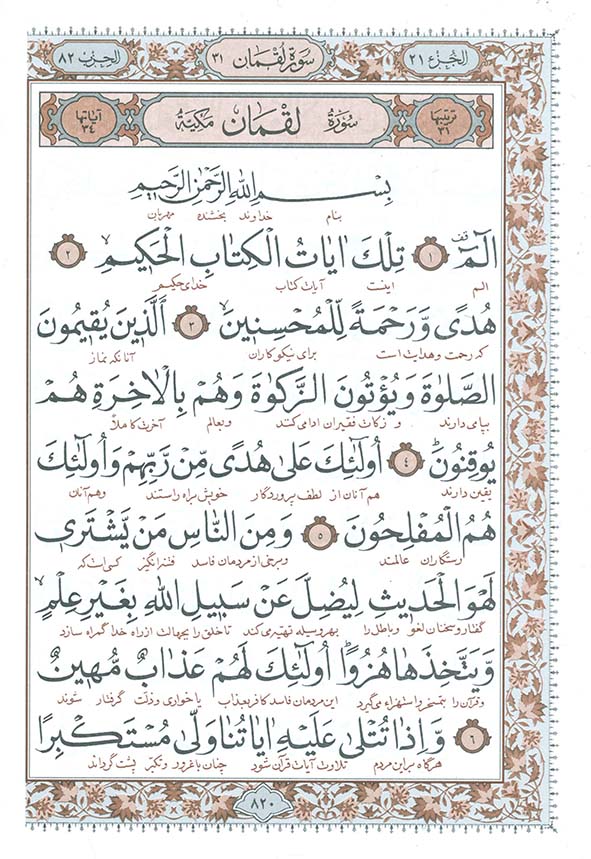 الجزء ٢١
سورة لقمان ٣١
الحزب ٨٢
ترتيبها ٣١
سورة لقمان مكية
آياتها ٣٤
بِسْمِ اللهِ الرَّحْمٰنِ الرَّحيمِ
بنام خداوند بخشنده مهربان
الٓمٓ ﴿١﴾ تِلْكَ اٰيَاتُ الْكِتَابِ الْحَكيمِ ﴿٢﴾
الم اینست آیات کتاب خدای حکیم
هُدًى وَّرَحْمَةً لِّلْمُحْسِنينَ ﴿٣﴾ اَلَّذينَ يُقيمُونَ
که رحمت و هدایت است برای نیکوکاران آنانکه نماز
الصَّلٰوةَ وَيُؤْتُونَ الزَّكٰوةَ وَهُمْ بِالْاٰخِرَةِ هُمْ
بپا میدارند و زکات فقیران ادا میکنند و بعالم آخرت کاملاً
يُوقِنُونَ ﴿٤﴾ اُولٰئِكَ عَلٰى هُدًى مِّنْ رَبِّهِمْ وَاُولٰئِكَ
یقین دارند هم آنان از لطف پروردگار خویش براه راستند و هم آنان
هُمُ الْمُفْلِحُونَ ﴿٥﴾ وَمِنَ النَّاسِ مَنْ يَّشْتَرى
رستگاران عالمند و برخی از مردمان فاسد فتنه انگیز کسی است که
لَهْوَ الْحَديثِ لِيُضِلَّ عَنْ سَبيلِ اللهِ بِغَيْرِ عِلْمٍ
گفتار و سخنان لغو و باطل را بهر وسیله تهیه می کند تا خلق را بجهالت از راه خدا گمراه سازد
وَّيَتَّخِذَهَا هُزُوًا اُولٰئِكَ لَهُمْ عَذَابٌ مُّهينٌ
و قرآن را بتمسخر و استهزاء می گیرد این مردمان فاسد کافر بعذاب با خواری و ذلت گرفتار شوند
﴿٦﴾ وَاِذَا تُتْلٰى عَلَيْهِ اٰيَاتُنَا وَلّٰى مُسْتَكْبِرًا
هرگاه بر این مردم تلاوت آیات قرآن شود چنان با غرور و تکبر پشت گرداند
٨٢٠